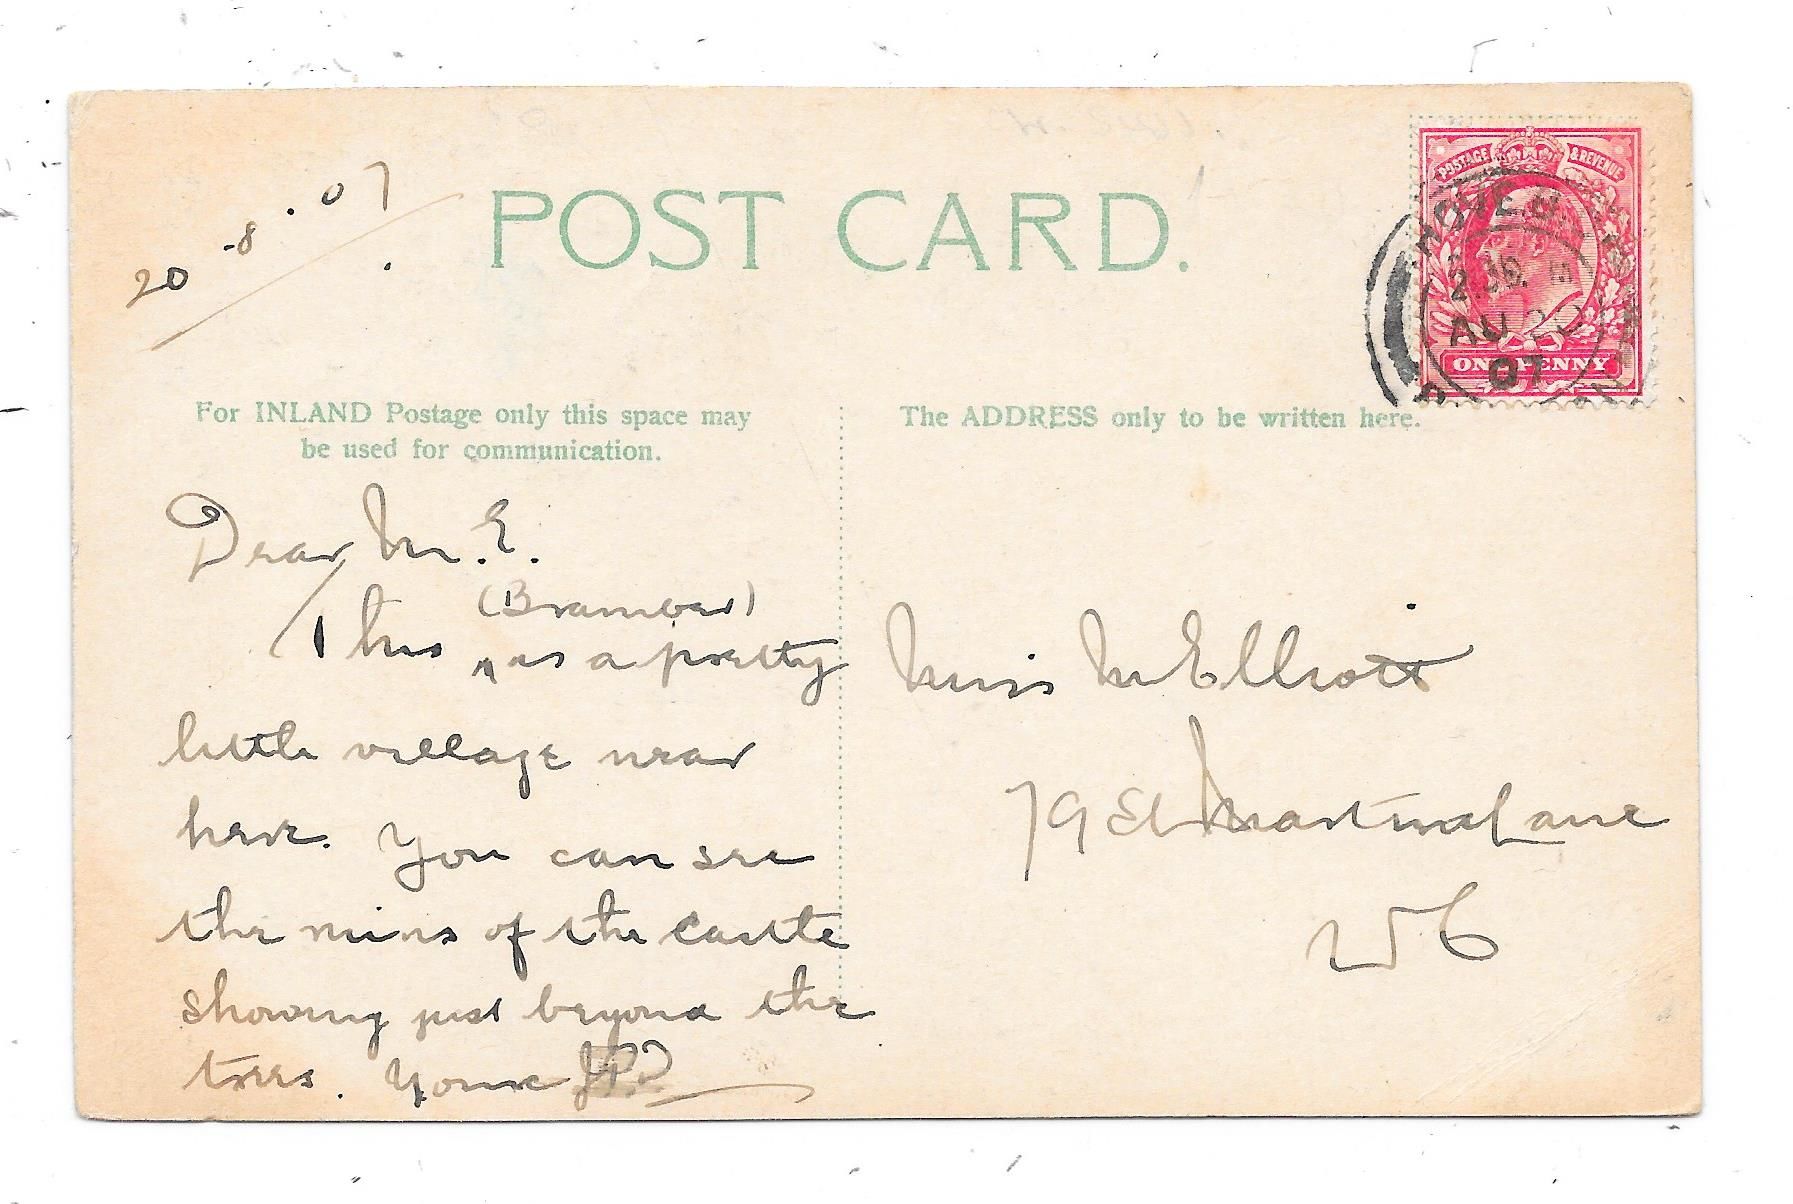 20-8.07
POST CARD.
POSTAGE & REVENUE
HOVE
AU 20
07
ONE PENNY
For INLAND Postage only this space may
be used for communication.
The ADDRESS only to be written here.
Dear M.E.
(Bramber)
This ^ is a pretty
little village near
here. You can see
the ruins of the castle
showing just beyond the
trees. Yours
Miss M Elliott
79 St Martins Lane
W C